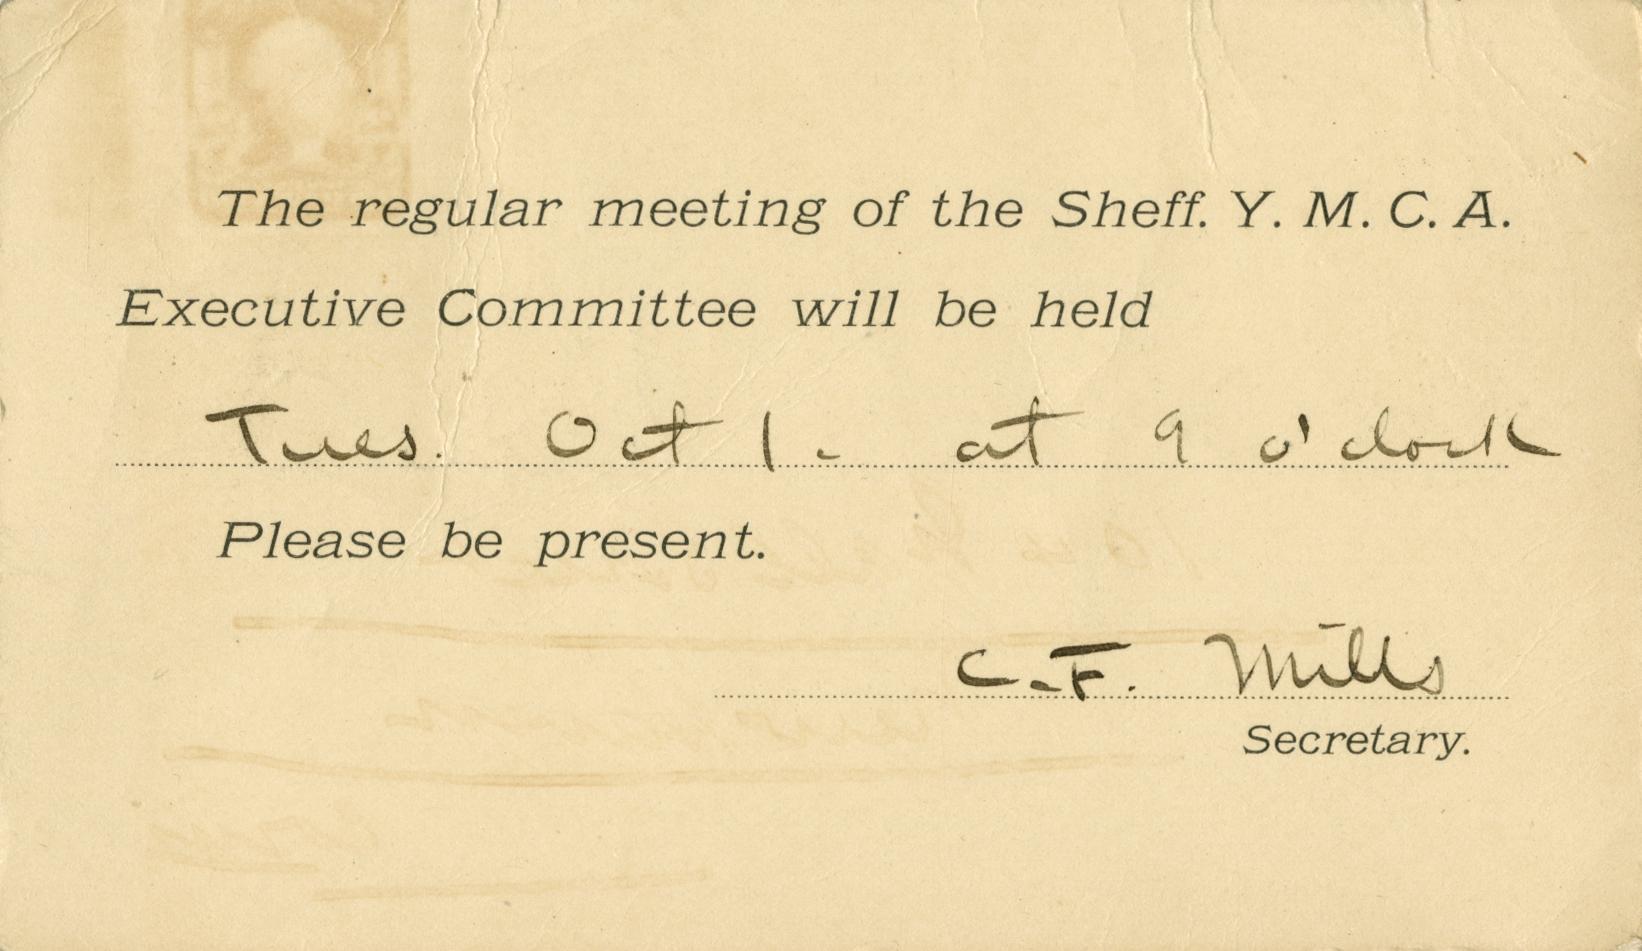 The regular meeting of the Sheff. Y. M. C. A.
Executive Committee will be held
Tues. Oct 1. at 9 o'clock
Please be present.
C. F. Mills
Secretary.